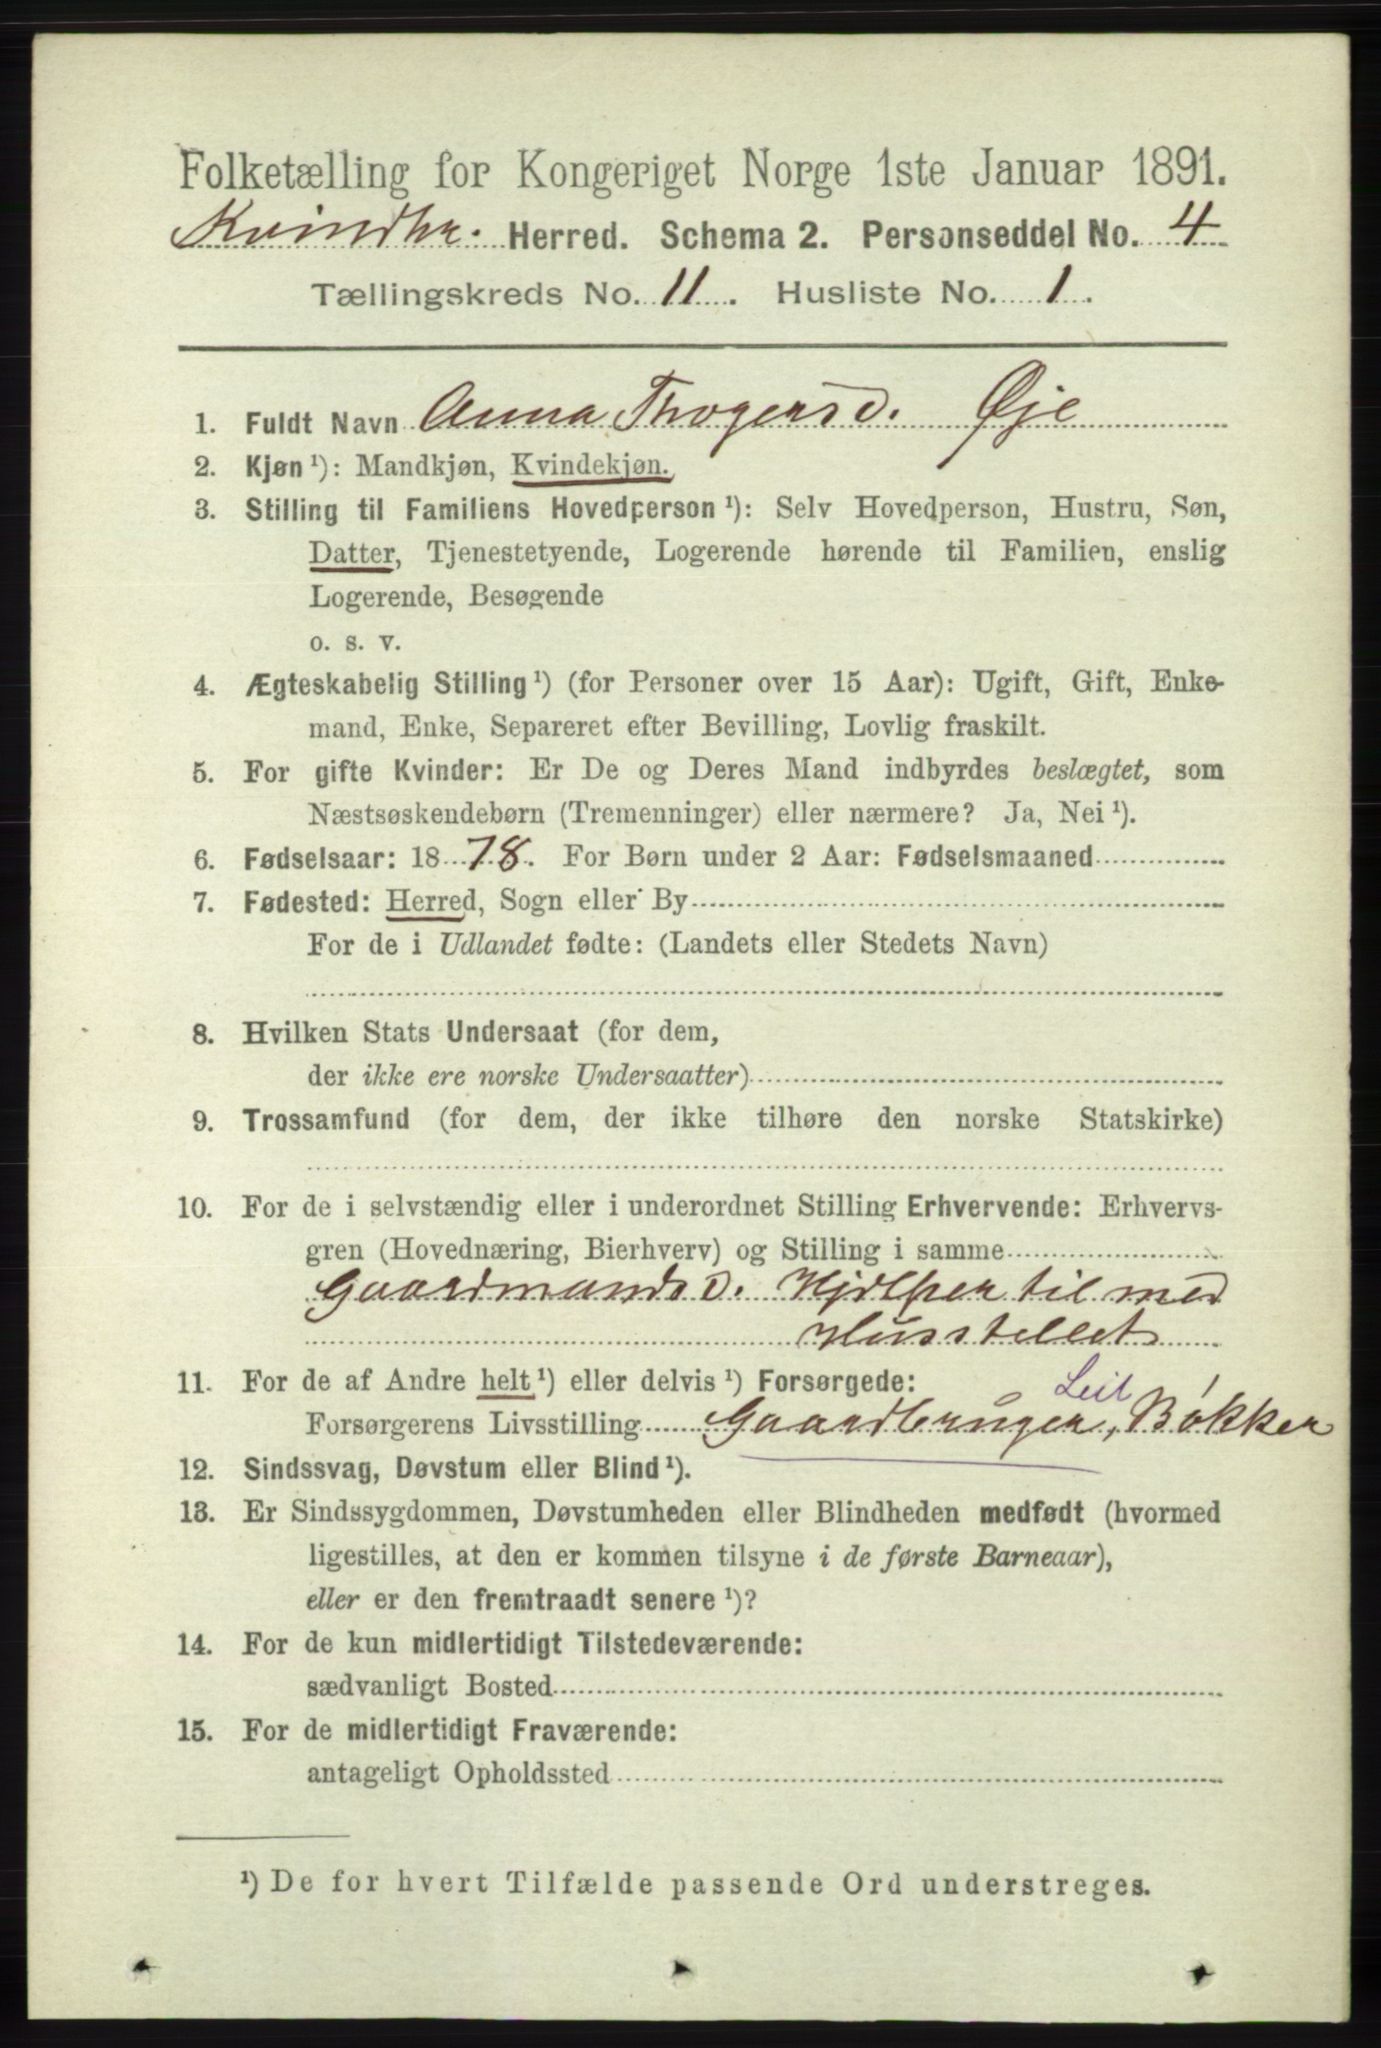 Folketælling for Kongeriget Norge 1ste Januar 1891.
Kvindhr. Herred. Schema 2. Personseddel No. 4
Tællingskreds No. 11. Husliste No. 1.
1. Fuldt Navn Anna Thogersd. Øje
2. Kjøn ¹): Mandkjøn, Kvindekjøn.
3. Stilling til Familiens Hovedperson ¹): Selv Hovedperson, Hustru, Søn,
Datter, Tjenestetyende, Logerende hørende til Familien, enslig
Logerende, Besøgende
o. s. v.
4. Ægteskabelig Stilling ¹) (for Personer over 15 Aar): Ugift, Gift, Enke-
mand, Enke, Separeret efter Bevilling, Lovlig fraskilt.
5. For gifte Kvinder: Er De og Deres Mand indbyrdes beslægtet, som
Næstsøskendebørn (Tremenninger) eller nærmere? Ja, Nei ¹).
6. Fødselsaar: 1878. For Børn under 2 Aar: Fødselsmaaned
7. Fødested: Herred, Sogn eller By
For de i Udlandet fødte: (Landets eller Stedets Navn)
8. Hvilken Stats Undersaat (for dem,
der ikke ere norske Undersaatter)
9. Trossamfund (for dem, der ikke tilhøre den norske Statskirke)
10. For de i selvstændig eller i underordnet Stilling Erhvervende: Erhvervs-
gren (Hovednæring, Bierhverv) og Stilling i samme
Gaardmandsd. Hjelper til med
Husstellet
11. For de af Andre helt ¹) eller delvis ¹) Forsørgede:
Leil
Forsørgerens Livsstilling Gaardbruger, Bøkker
12. Sindssvag, Døvstum eller Blind ¹).
13. Er Sindssygdommen, Døvstumheden eller Blindheden medfødt (hvormed
ligestilles, at den er kommen tilsyne i de første Barneaar),
eller er den fremtraadt senere ¹)?
14. For de kun midlertidigt Tilstedeværende:
sædvanligt Bosted
15. For de midlertidigt Fraværende:
antageligt Opholdssted
¹) De for hvert Tilfælde passende Ord understreges.